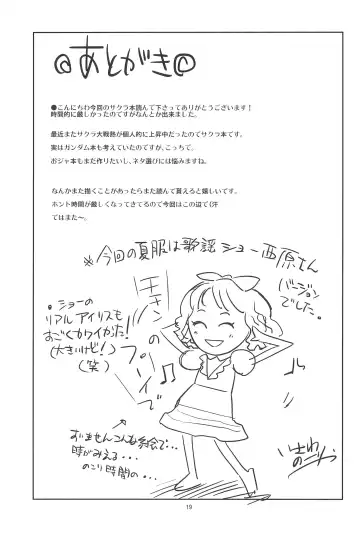 @あとがき@
●こんにちわ今回のサクラ本読んで下さってありがとうございます！
時間的に厳しかったのですがなんとか出来ました。
最近またサクラ大戦熱が個人的に上昇中だったのでサクラ本です。
実はガンダム本も考えていたのですが、こっちで。
おジャ本もまだ作りたいし、ネタ選びには悩みますね。
なんかまた描くことがあったらまた読んで貰えると嬉しいです。
ホント時間が厳しくなってきてるので今回はこの辺で(汗
ではまた〜。
※今回の夏服は歌謡ショー西原さん
バージョン
でした。
・ショーの
リアルアイリスも
すごくカワイかった！
(大きいけど！)
(笑)
すいませんこんな絵で・・・
時がみえる・・・
のこり時間の・・・
いさわ
のーり
19